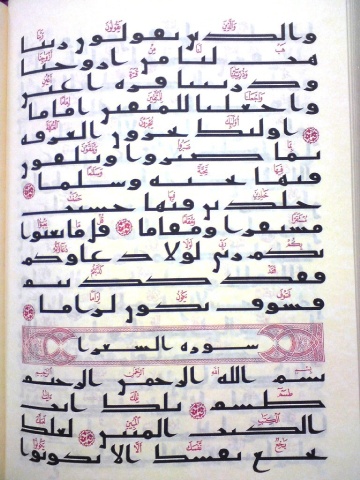 والذين يقولون ربنا
هب لنا من ازوجنا
وذريتنا قرة اعين
واجعلنا للمتقين اماما
اولئك يجزون الغرفة
بما صبروا ويلقون
فيها تحية وسلما
خلدين فيها حسنت
مستقرا ومقاما قل ما يعبوا
بكم ربي لولا دعاوكم
فقد كذبتم
فسوف يكون لزاما
سورة الشعرا
بسم الله الرحمن الرحيم
طسم تلك ايت
الكتب المبين لعلك
بخع نفسك الا يكونوا